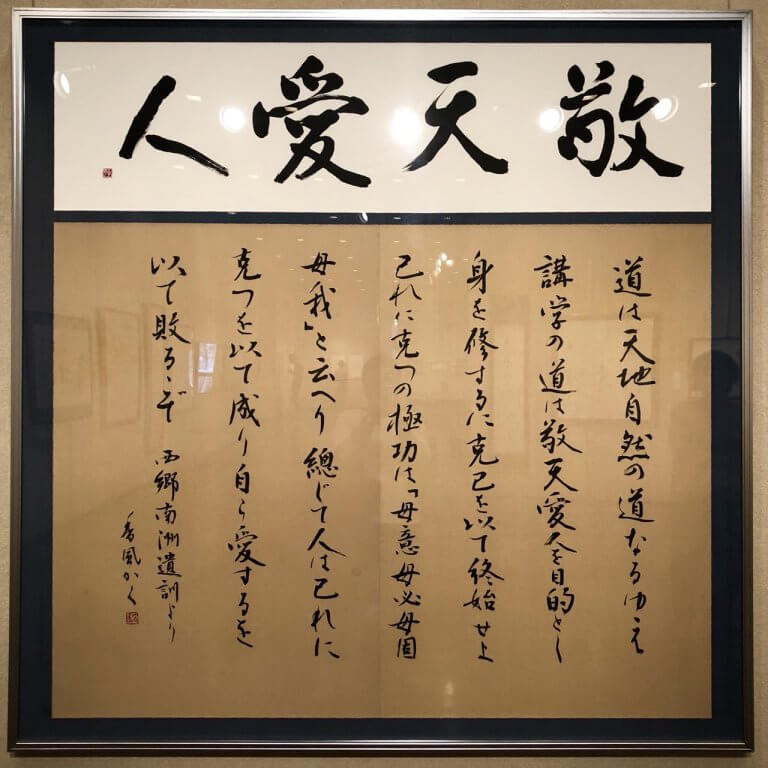 敬天愛人
道は天地自然の道なるゆえ
講学の道は敬天愛人を目的とし
身を修するに克己を以て終始せよ
己れに克つの極功は「毋意毋必毋固
毋我」と云へり總じて人は己れに
克つを以て成り自ら愛するを
以て敗るゝぞ 西郷南洲遺訓より
香風かく